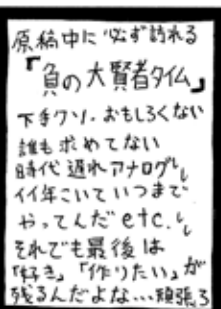 原稿中に必ず訪れる
『負の大賢者タイム』
下手クソ、おもしろくない
誰も求めてない
時代遅れアナログ
イイ年こいていつまで
やってんだetc.
それでも最後は
「好き」「作りたい」が
残るんだよな…頑張ろ